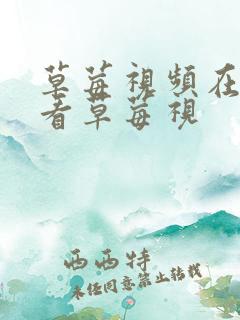 草莓視頻在
看草莓視
西西特
未经同意禁止转载